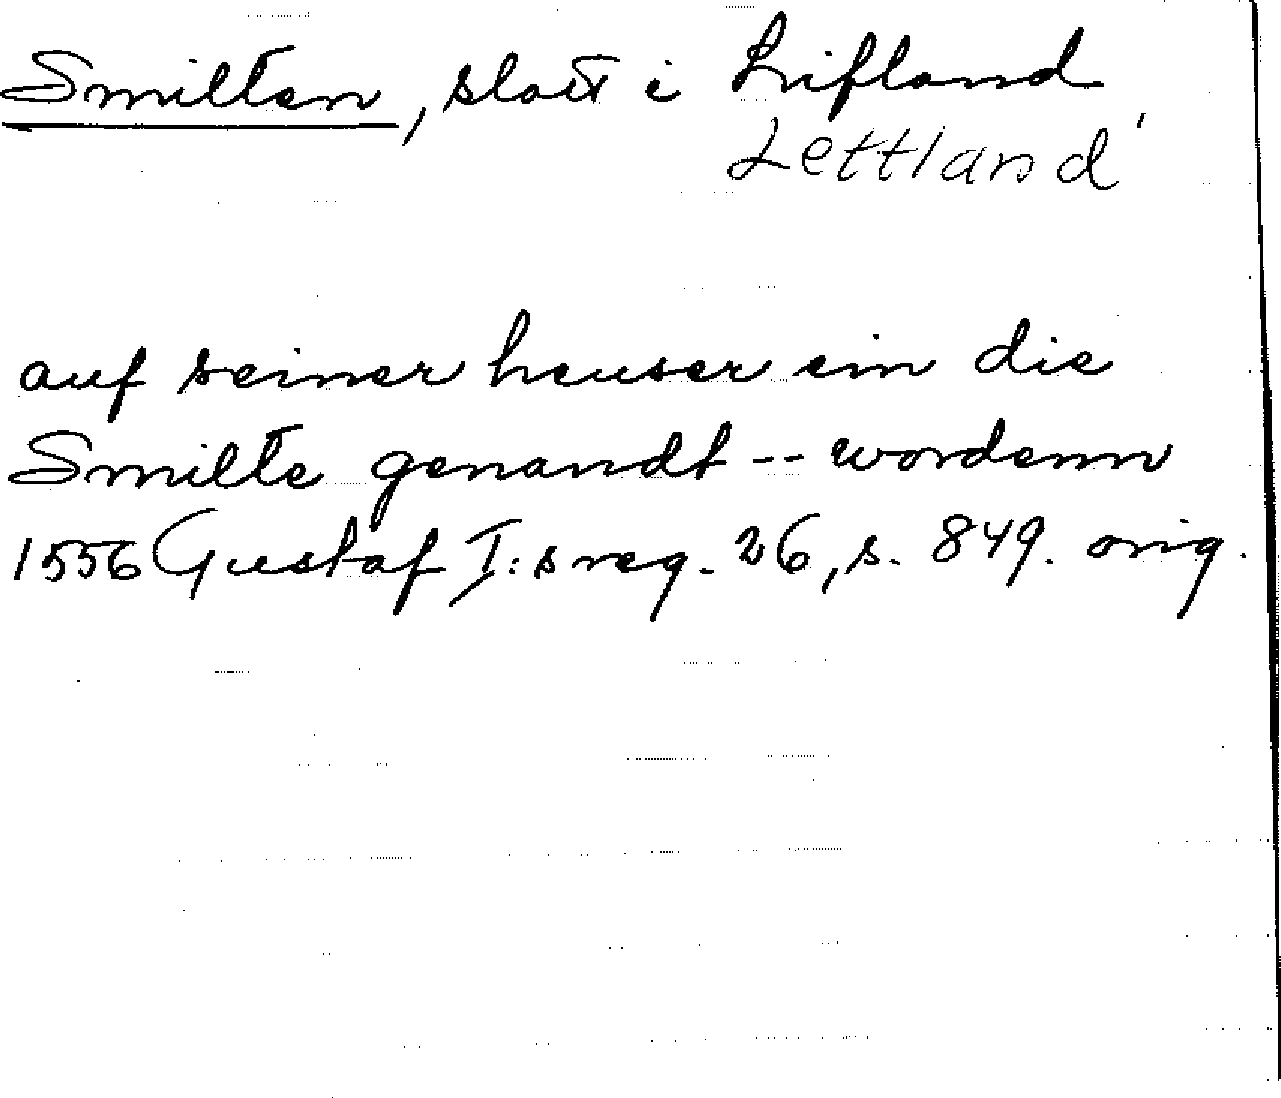 Smilten, slott i Lifland
Lettland
auf seiner heuser ein die
Smilte genandt -- wordenn
1556 Gustaf I:s reg. 26, s. 849. orig.